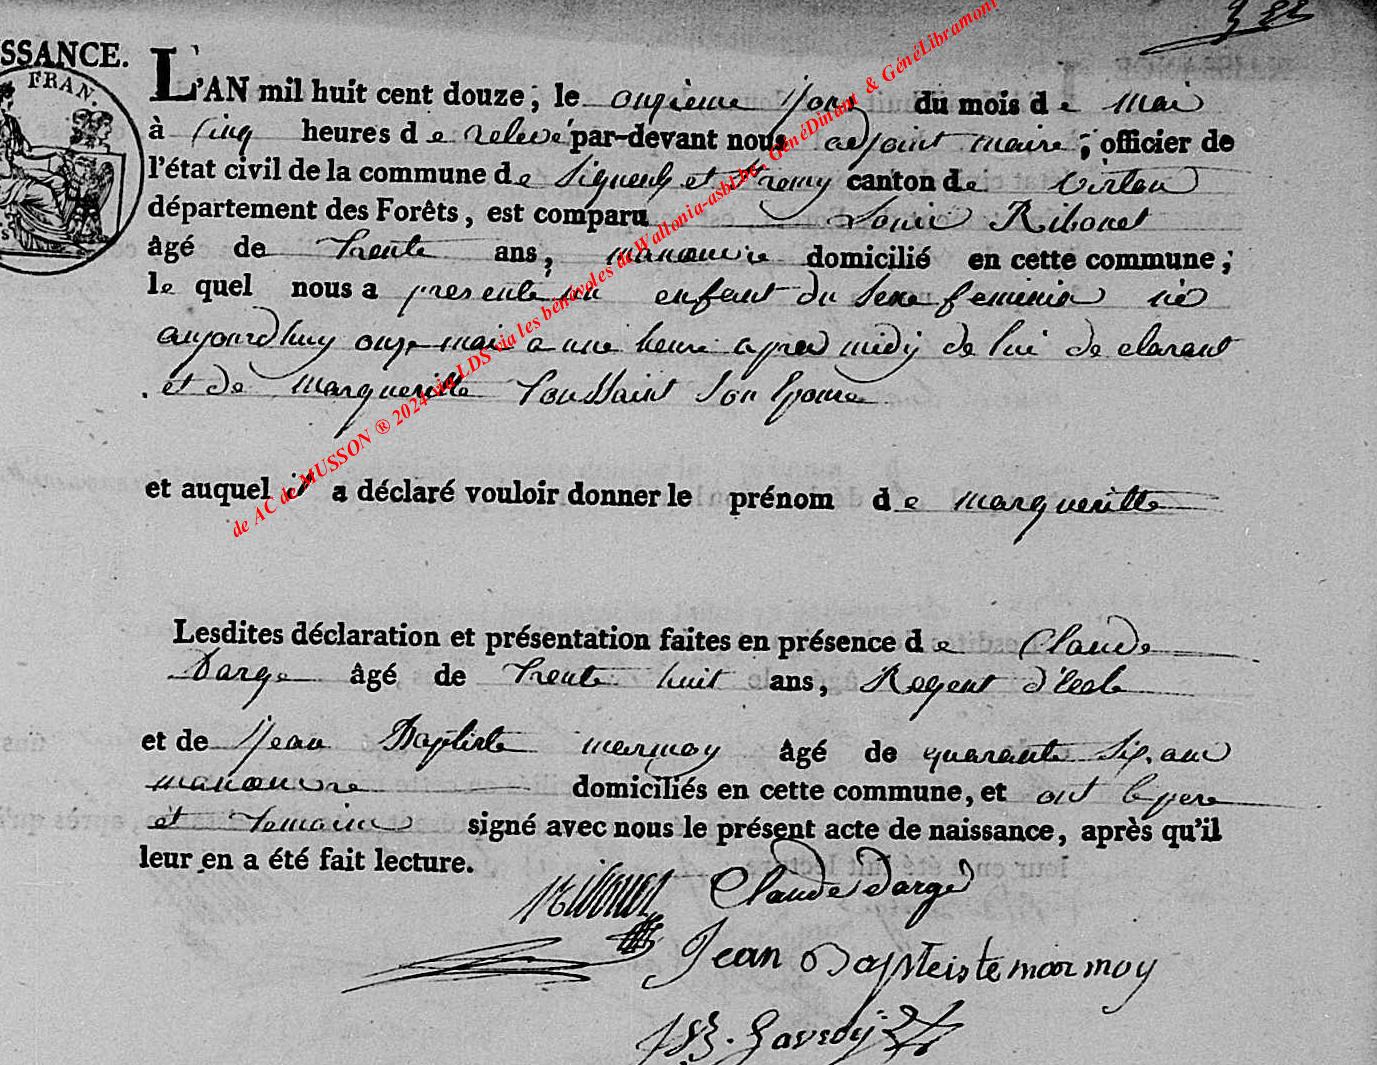 SSANCE.
FRAN.
L'AN mil huit cent douze, le onzieme Jour du mois de mai
à cinq heures de relevé par-devant nous adjoint maire, officier de
l'état civil de la commune de Signeulx et canton de Virton
département des Forêts, est comparu Louis Ribonet
âgé de trente ans, manoeuvre domicilié en cette commune;
le quel nous a presenté un enfant du sexe feminin né
aujourdhuy onze mai a une heure apres midÿ de lui declarant
et de Margueritte Toussaint son Epouse
et auquel il a déclaré vouloir donner le prénom de margueritte
Lesdites déclaration et présentation faites en présence de Claude
Darge âgé de trente huit ans, Regent d'Ecole
et de Jean Baptiste marmoy âgé de quarante six ans
manoeuvre domiciliés en cette commune, et ont le pere
et temoins signé avec nous le présent acte de naissance, après qu'il
leur en a été fait lecture.
Ribonet Claude Darge
Jean Bapteiste marmoy
de AC de MUSSON ® 2024 via LDS via les bénévoles de Wallonia-asbl.be, GénéDinant & GénéLibramont